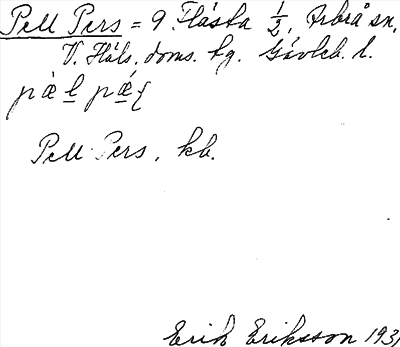 Pell Pers = 9 Flästa 1/2, Arbrå sn,
V. Häls. doms. hg. Gävleb. l.
pæ̀l pǽʃ
Pell Pers, kb.
Erik Eriksson 1931